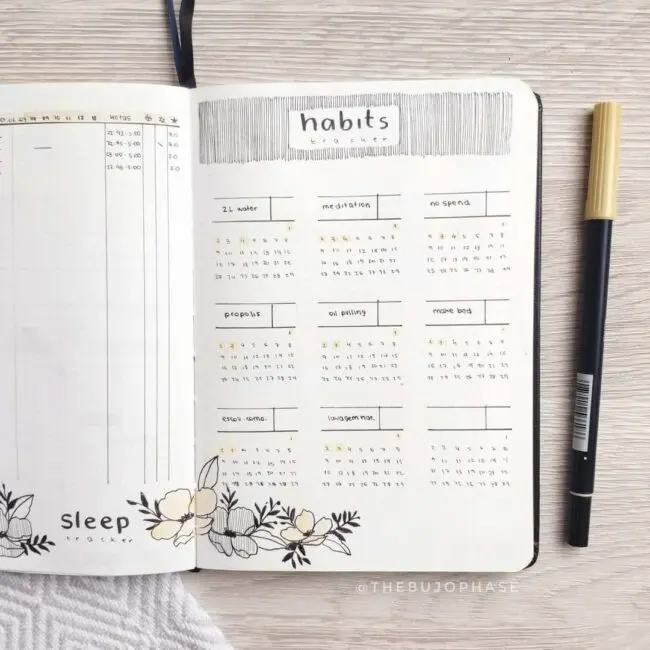 habits
tracker
2L water
meditation
no spend
1
2 3 4 5 6 7 8
9 10 11 12 13 14 15
16 17 18 19 20 21 22
23 24 25 26 27 28 29
1
2 3 4 5 6 7 8
9 10 11 12 13 14 15
16 17 18 19 20 21 22
23 24 25 26 27 28 29
1
2 3 4 5 6 7 8
9 10 11 12 13 14 15
16 17 18 19 20 21 22
23 24 25 26 27 28 29
propolis
oil pulling
make bed
1
2 3 4 5 6 7 8
9 10 11 12 13 14 15
16 17 18 19 20 21 22
23 24 25 26 27 28 29
1
2 3 4 5 6 7 8
9 10 11 12 13 14 15
16 17 18 19 20 21 22
23 24 25 26 27 28 29
1
2 3 4 5 6 7 8
9 10 11 12 13 14 15
16 17 18 19 20 21 22
23 24 25 26 27 28 29
lavagem nar.
1
2 3 4 5 6 7 8
9 10 11 12 13 14 15
16 17 18 19 20 21 22
23 24 25 26 27 28 29
1
2 3 4 5 6 7 8
9 10 11 12 13 14 15
16 17 18 19 20 21 22
23 24 25 26 27 28 29
1
2 3 4 5 6 7 8
9 10 11 12 13 14 15
16 17 18 19 20 21 22
23 24 25 26 27 28 29
sleep
tracker
@THEBUJOPHASE